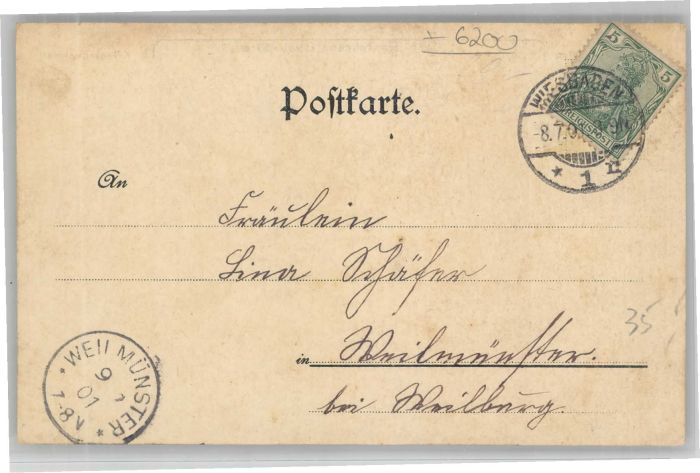 ± 6200
5 5
REICHSPOST
WIESBADEN
-8.7.01
* 1 n
Postkarte.
An
Fräulein
Lina Schäfer
35
in Weilmünster.
bei Weilburg.
* WEILMÜNSTER *
9
7
01
7-8N